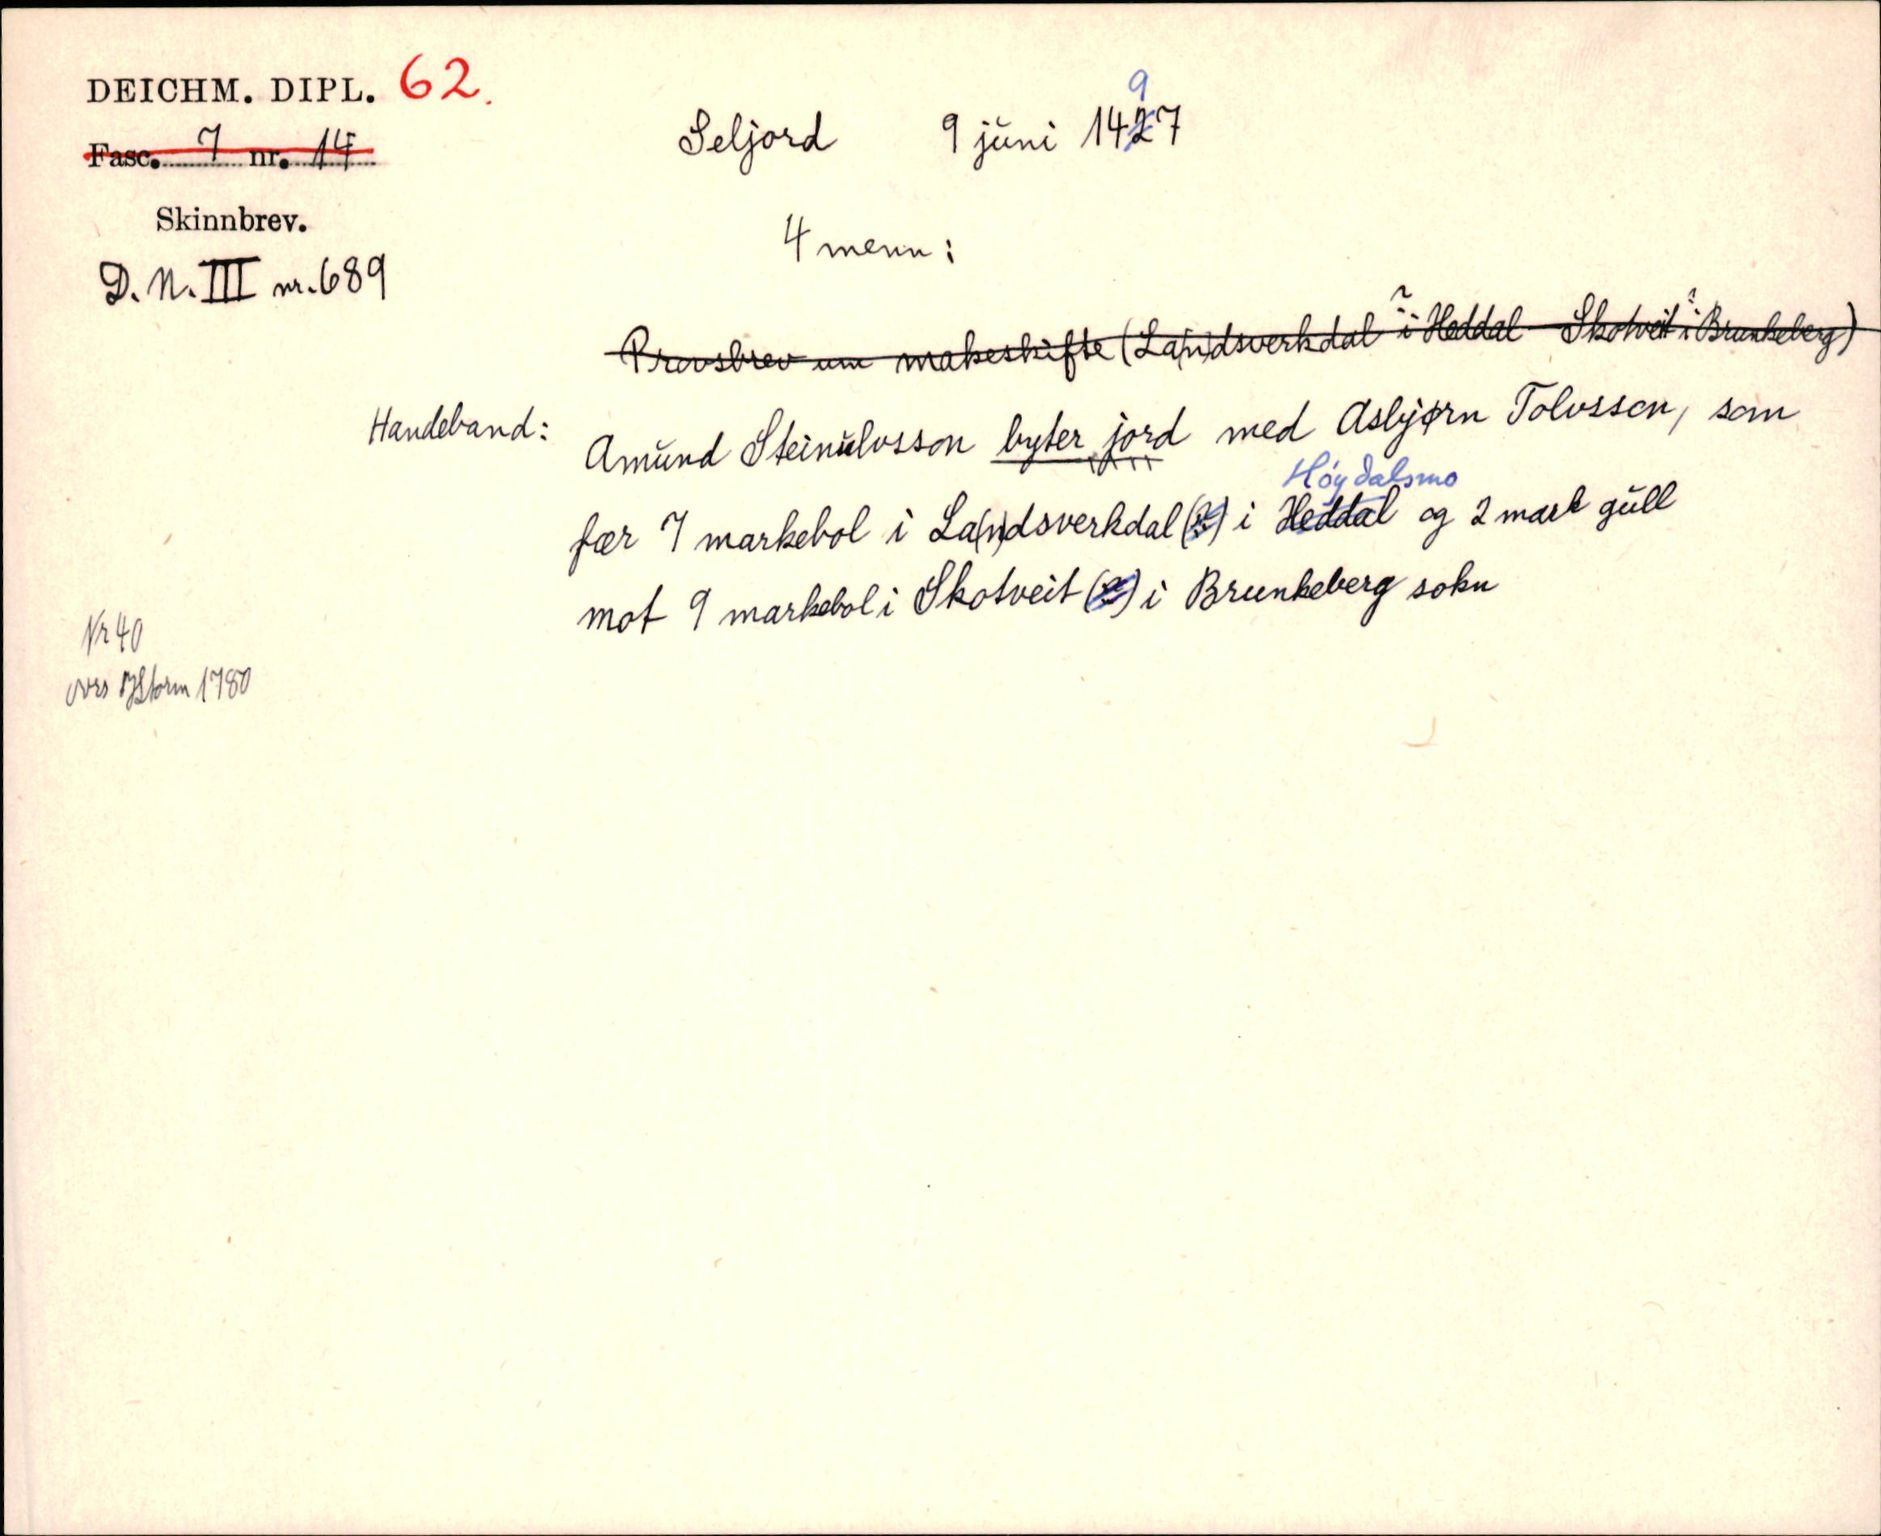 DEICHM. DIPL. 62.
Fasc. 7 nr. 14
Skinnbrev.
D. N. III nr. 689
Seljord 9 juni 1427
9
4 menn:
Provsbrev um makeskifte (La(n)dsverkdal ? i Heddal - Skotveit ? i Brunkeberg)
Handeband:
Amund Steinulvsson byter jord med Asbjørn Tolvsson, som
Høydalsmo
fær 7 markebol i La(n)dsverkdal (?) i Heddal og 2 mark gull
mot 9 markebol i Skotveit (?) i Brunkeberg sokn
Nr 40
Storm 1780